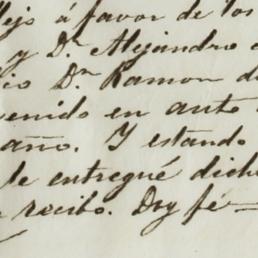 llejo á favor de los
y Dn Alejandro
io Dn Ramon de
enido en auto
año. Y estando
le entregué dich
recibo. Doy fé—